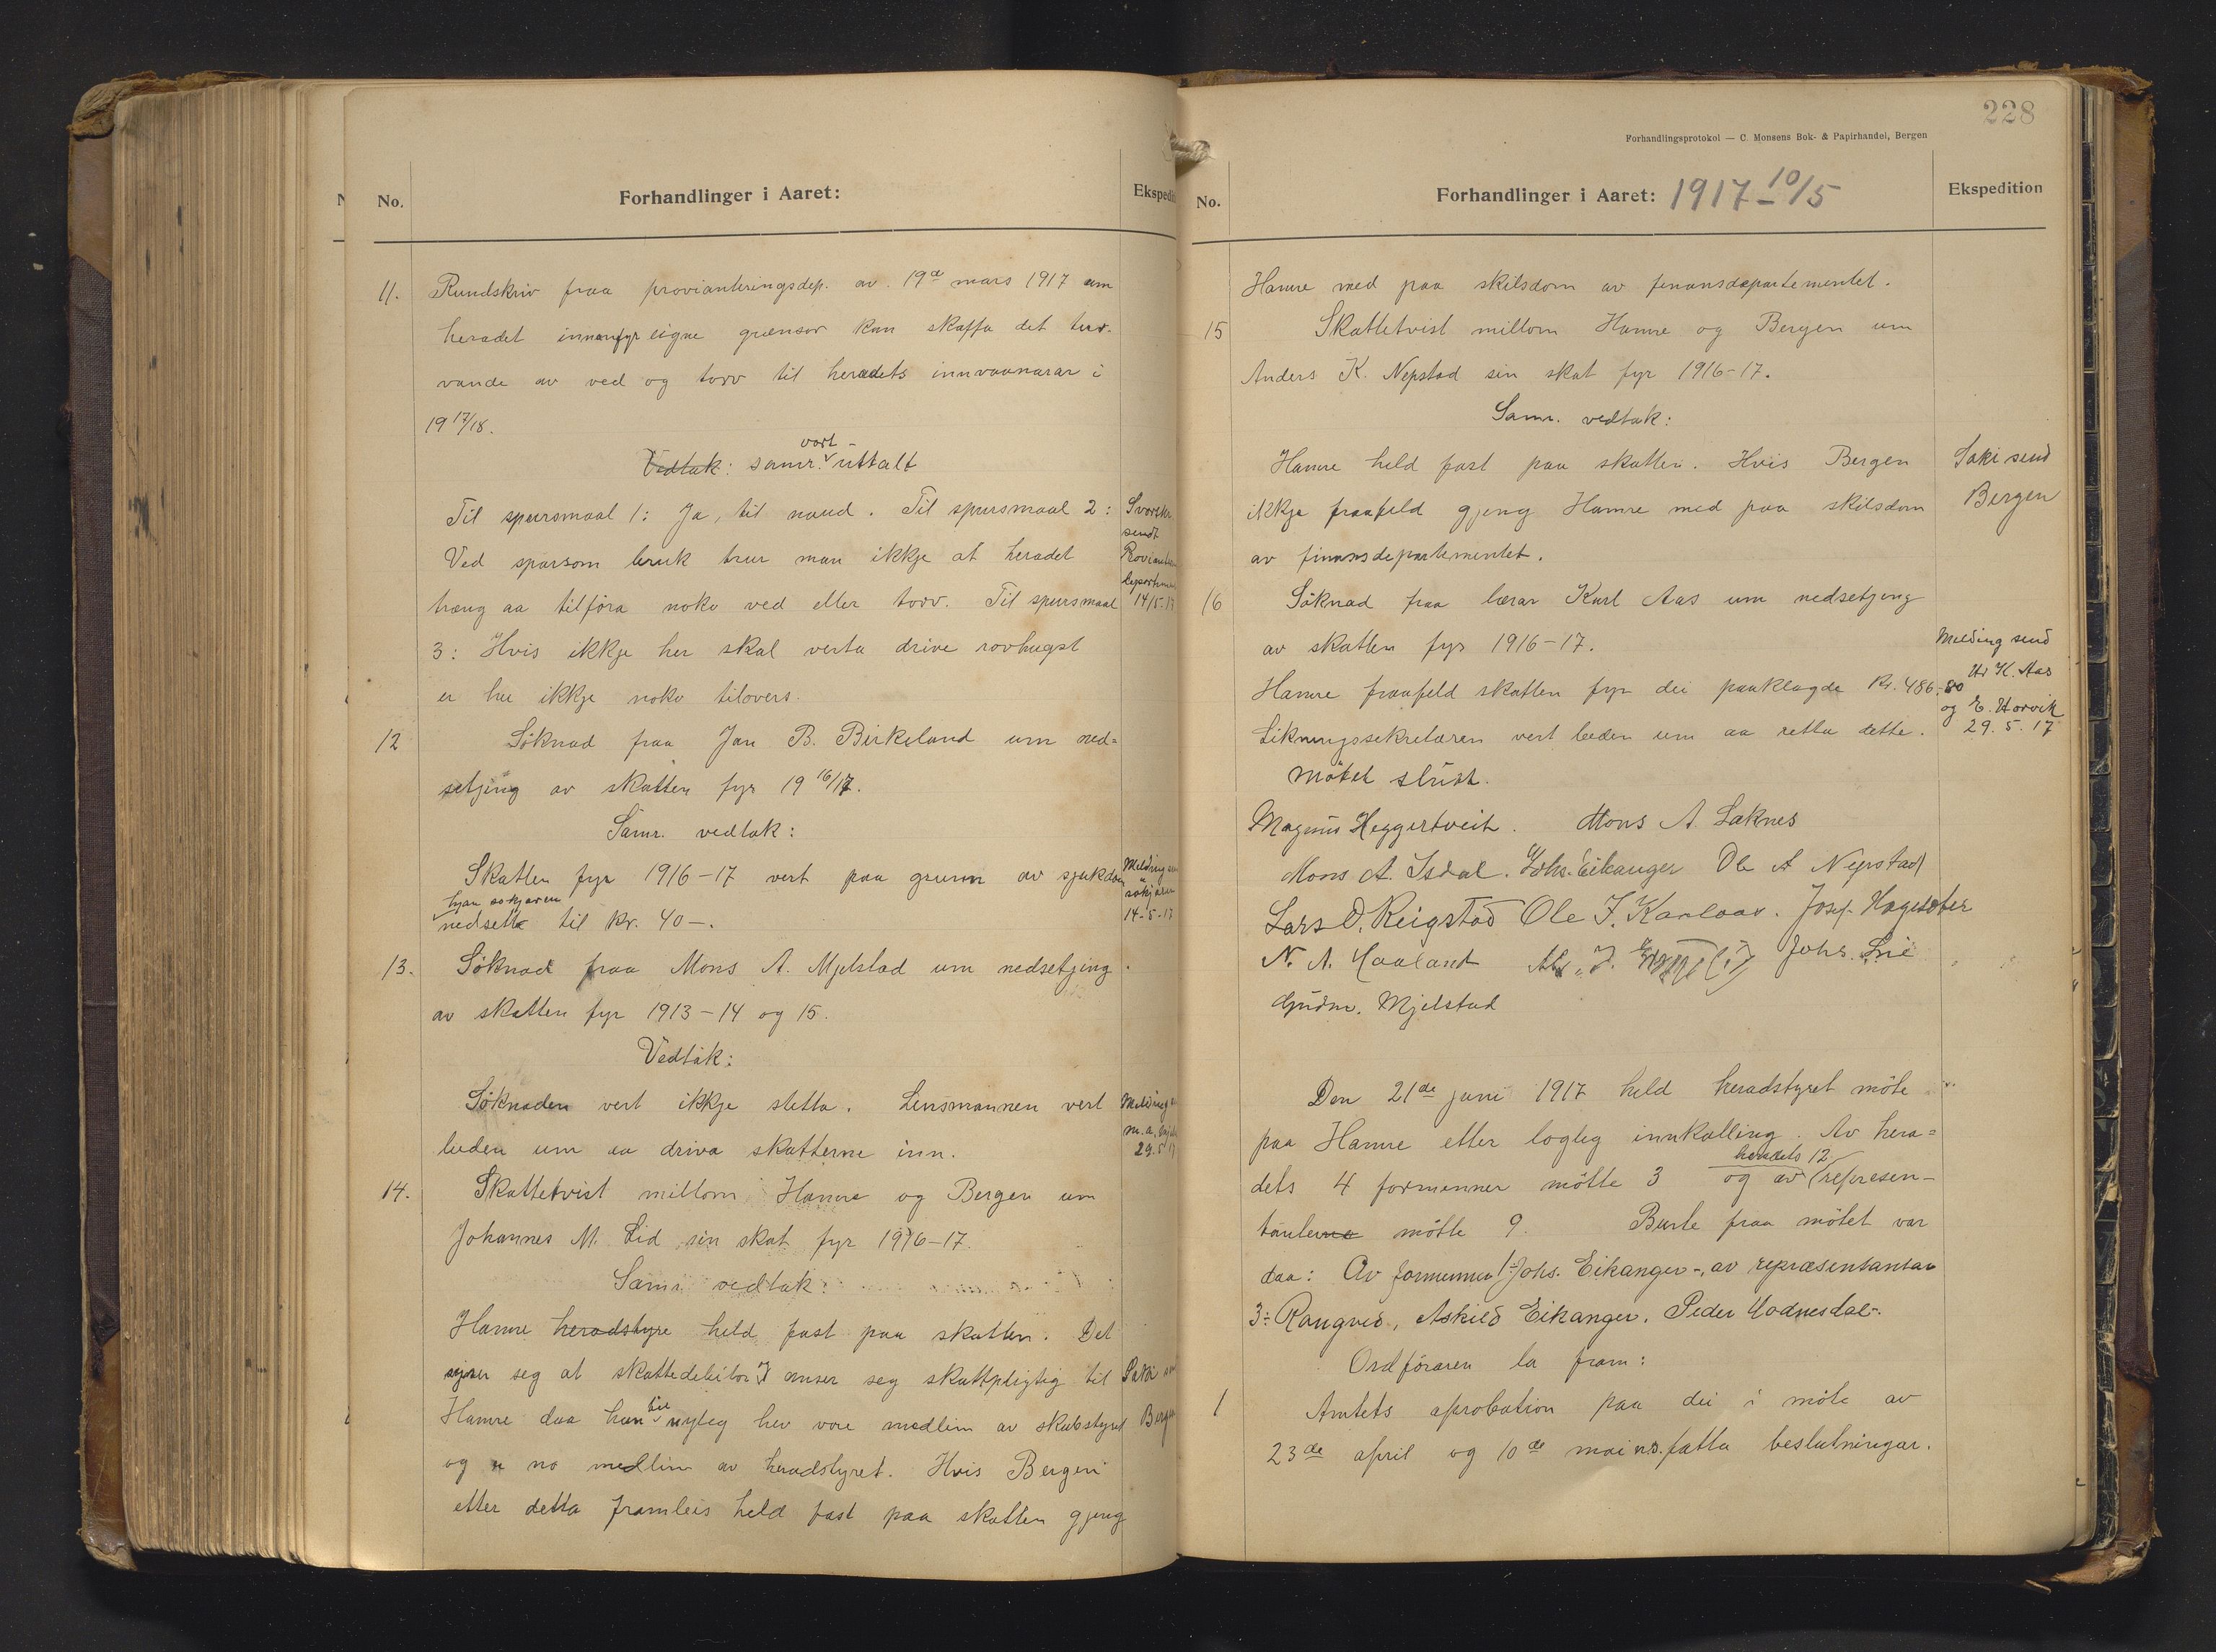 No.
Forhandlinger i Aaret:
Ekspedi
11. Rundskriv fraa provianteringsdep. av 19de mars 1917 um
heradet innanfyr eigne grænsor kan skaffa det tur-
vande av ved og torv til heradets innvaanarar i
19 17/18.
Vedtak: samr. vart uttalt
Til spursmaal 1: Ja, til naud. Til spursmaal 2:
Ved sparsom bruk trur man ikkje at heradet
træng aa tilföra noko ved eller torv. Til spursmaal
3: Hvis ikkje her skal verta drive rovhugst
er her ikkje noko tilovers.
sendt
14/5-17
12 Söknad fraa Jan B. Birkeland um ned=
setjing av skatten fyr 19 16/17.
Samr. vedtak:
Skatten fyr 1916-17 vert paa grunn av sjukdom
hjaa sökjaren
nedsett til kr. 40-.
Melding
sökjaren
14-5-17
13. Söknad fraa Mons A. Mjelstad um nedsetjing
av skatten fyr 1913-14 og 15.
Vedtak:
Söknaden vert ikkje stetta. Lensmannen vert
beden um aa driva skatterne inn.
Melding
29.5.17
14. Skattetvist millom Hamre og Bergen um
Johannes M. Lid sin skat fyr 1916-17.
Samr. vedtak:
Hamre heradstyre held fast paa skatten. Det
syner seg at skattedebitor anser seg skattpligtig til
Hamre daa han til nyleg hev vore medlem av skulestyret
og er no medlem av heradstyret. Hvis Bergen
etter detta framleis held fast paa skatten gjeng
Saki
Bergen
228
Forhandlingsprotokol — C. Monsens Bok- & Papirhandel, Bergen
No.
Forhandlinger i Aaret: 1917 – 10/5
Ekspedition
Hamre med paa skilsdom av finansdepartementet.
15 Skattetvist millom Hamre og Bergen um
Anders K. Nepstad sin skat fyr 1916-17.
Samr. vedtak:
Hamre held fast paa skatten. Hvis Bergen
ikkje fraafeld gjeng Hamre med paa skilsdom
av finansdepartementet.
Saki send
Bergen
16 Söknad fraa lærar Karl Aas um nedsetjing
av skatten fyr 1916-17.
Hamre fraafeld skatten fyr dei paaklagde kr. 486-80
Likningssekretæren vert beden um aa retta dette.
Melding send
Hr K. Aas
og E. Horvik
29.5.17
Mötet slutt.
Magnus Heggertveit. Mons A. Laknes
Mons A. Isdal. Johs. Eikanger Ole A Nepstad
Lars O. Reigstad Ole J. Kanlaas. Josef Hageseter
N. A. Haaland Johs. Lie
Gudm. Mjelstad
Den 21de juni 1917 held heradstyret möte
paa Hamre etter lagleg innkalling. Av hera=
dets 4 formenner mötte 3 og av heradets 12 represen-
tanterne mötte 9. Burte fraa mötet var
daa: Av formenner Johs. Eikanger -, av repræsentantar
3: Rangved, Askild Eikanger. Peder Vadnesdal-.
Ordföraren la fram:
1 Amtets aprobation paa dei i möte av
23de april og 10de mai ns. fatta beslutningar.